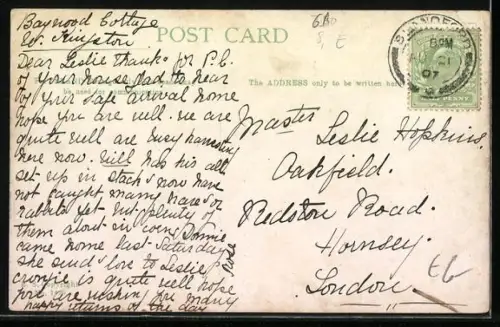 Baywood Cottage
W. Kingston
Dear Leslie thanks for P.C.
of your house glad to hear
of your safe arrival home
hope you are well. we are
quite well are busy
here now. Will has his all
set up in stack & now have
not caught many hares or
rabbits yet but plenty of
them about in Donnie
came home last Saturday
she sends love to Leslie
is quite well hope
you are wishing you many
happy returns of the day
POST CARD
The ADDRESS only to be written here
BLANDFORD
6 PM
AU 21
07
PENNY
Master
Leslie Hopkins.
Oakfield.
Redston Road.
Hornsey.
London